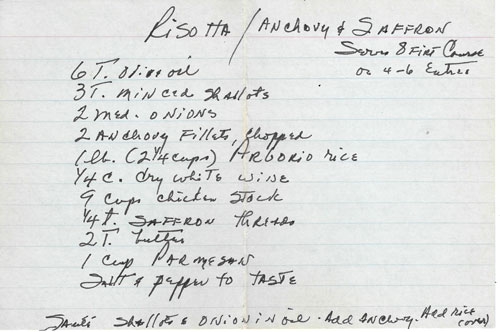 Risotta / Anchovy & Saffron
Serves 8 First Course
or 4-6 Entrees
6 T. Olive oil
3 T. minced shallots
2 med. onions
2 Anchovy Fillets, chopped
1 lb. (2 1/4 cups) Arborio rice
1/4 c. dry white wine
9 cups chicken stock
1/4 t. Saffron threads
2 T. butter
1 cup Parmesan
Salt & pepper to taste
Sauté shallots & onion in oil. Add anchovy. Add rice
(over)